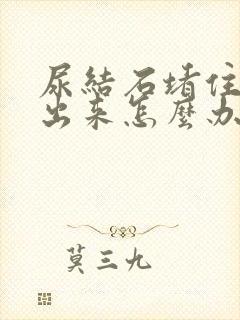 尿結石堵住
出来怎麼办
莫三九